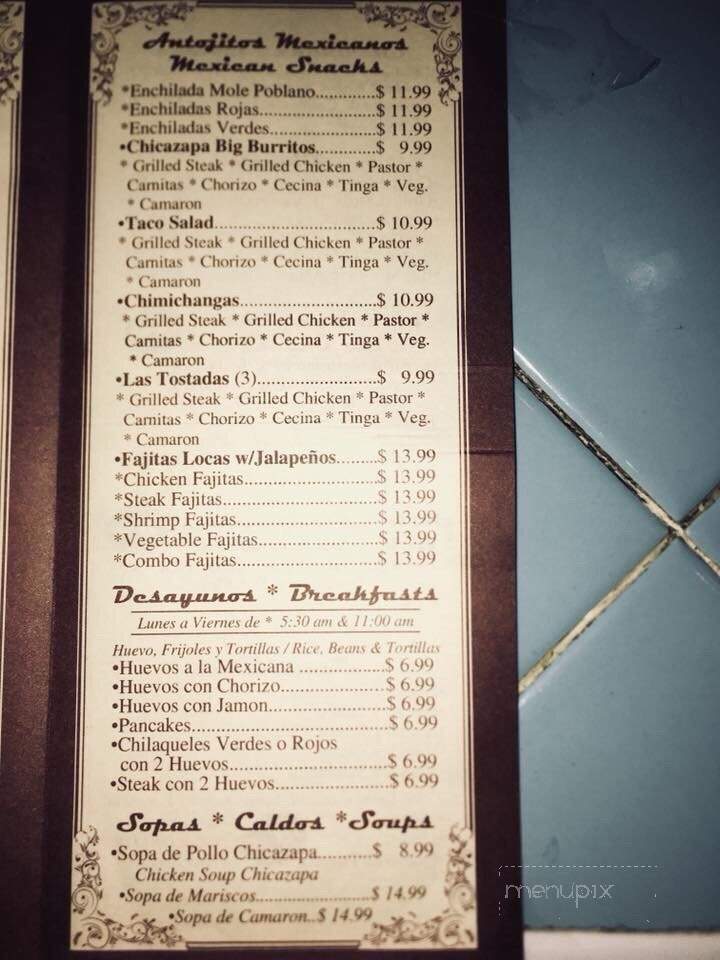 Antojitos Mexicanos
Mexican Snacks
*Enchilada Mole Poblano............$ 11.99
*Enchiladas Rojas.......................$ 11.99
*Enchiladas Verdes.....................$ 11.99
•Chicazapa Big Burritos............$ 9.99
* Grilled Steak * Grilled Chicken * Pastor *
Carnitas * Chorizo * Cecina * Tinga * Veg.
* Camaron
•Taco Salad................................$ 10.99
* Grilled Steak * Grilled Chicken * Pastor *
Carnitas * Chorizo * Cecina * Tinga * Veg.
* Camaron
•Chimichangas...........................$ 10.99
* Grilled Steak * Grilled Chicken * Pastor *
Carnitas * Chorizo * Cecina * Tinga * Veg.
* Camaron
•Las Tostadas (3)........................$ 9.99
* Grilled Steak * Grilled Chicken * Pastor *
Carnitas * Chorizo * Cecina * Tinga * Veg.
* Camaron
•Fajitas Locas w/Jalapeños........$ 13.99
*Chicken Fajitas..........................$ 13.99
*Steak Fajitas..............................$ 13.99
*Shrimp Fajitas...........................$ 13.99
*Vegetable Fajitas.......................$ 13.99
*Combo Fajitas...........................$ 13.99
Desayunos * Breakfasts
Lunes a Viernes de * 5:30 am & 11:00 am
Huevo, Frijoles y Tortillas / Rice, Beans & Tortillas
•Huevos a la Mexicana .................$ 6.99
•Huevos con Chorizo.....................$ 6.99
•Huevos con Jamon.......................$ 6.99
•Pancakes.......................................$ 6.99
•Chilaqueles Verdes o Rojos
con 2 Huevos...............................$ 6.99
•Steak con 2 Huevos......................$ 6.99
Sopas * Caldos *Soups
•Sopa de Pollo Chicazapa...........$ 8.99
Chicken Soup Chicazapa
•Sopa de Mariscos.......................$ 14.99
•Sopa de Camaron..$ 14.99
menupix